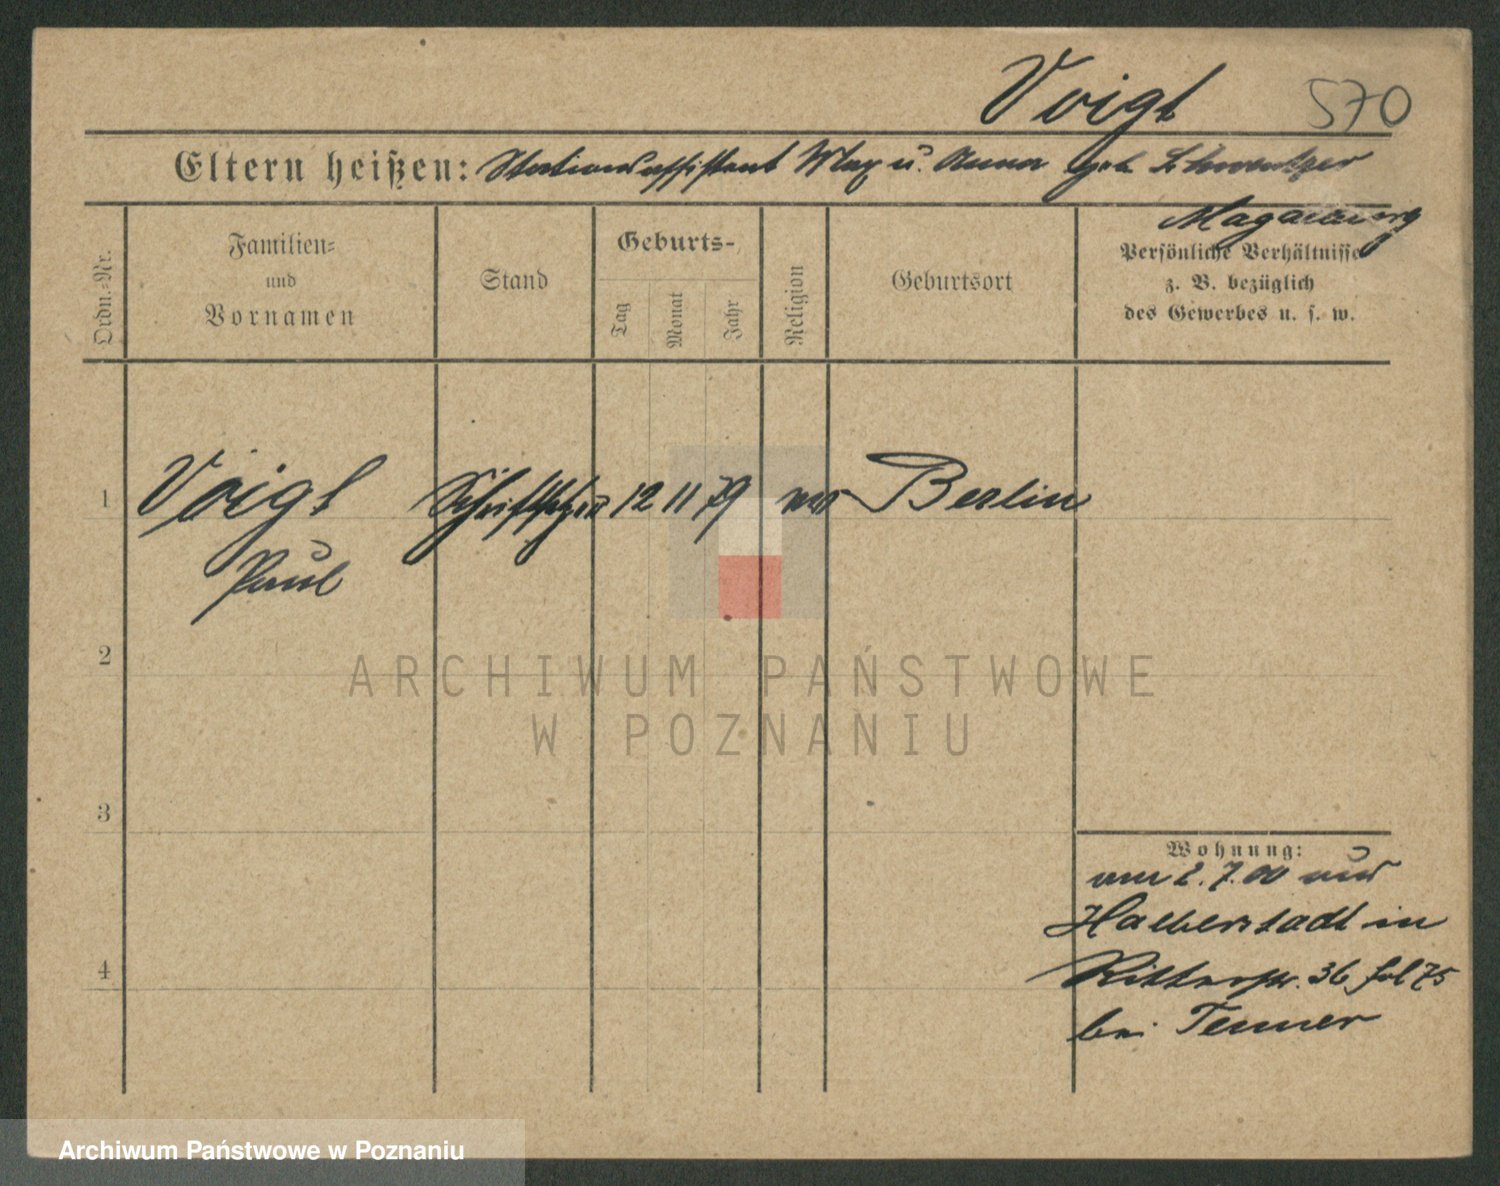 Voigt 570
Eltern heißen: Stationsassistent Max u. Anna geb.
Magdeburg
Ordn.-Nr.
Familien-
und
Vornamen
Stand
Geburts-
Tag
Monat
Jahr
Religion
Geburtsort
Persönliche Verhältnisse
z. B. bezüglich
des Gewerbes u. s. w.
1 Voigt Schriftsetzer 12 11 79 Berlin
Paul
2
3
4
ARCHIWUM PAŃSTWOWE
W POZNANIU
Wohnung:
am 2. 7. 00 aus
Halberstadt in
Ritterstr. 36 fol 75
bei Tenner
Archiwum Państwowe w Poznaniu